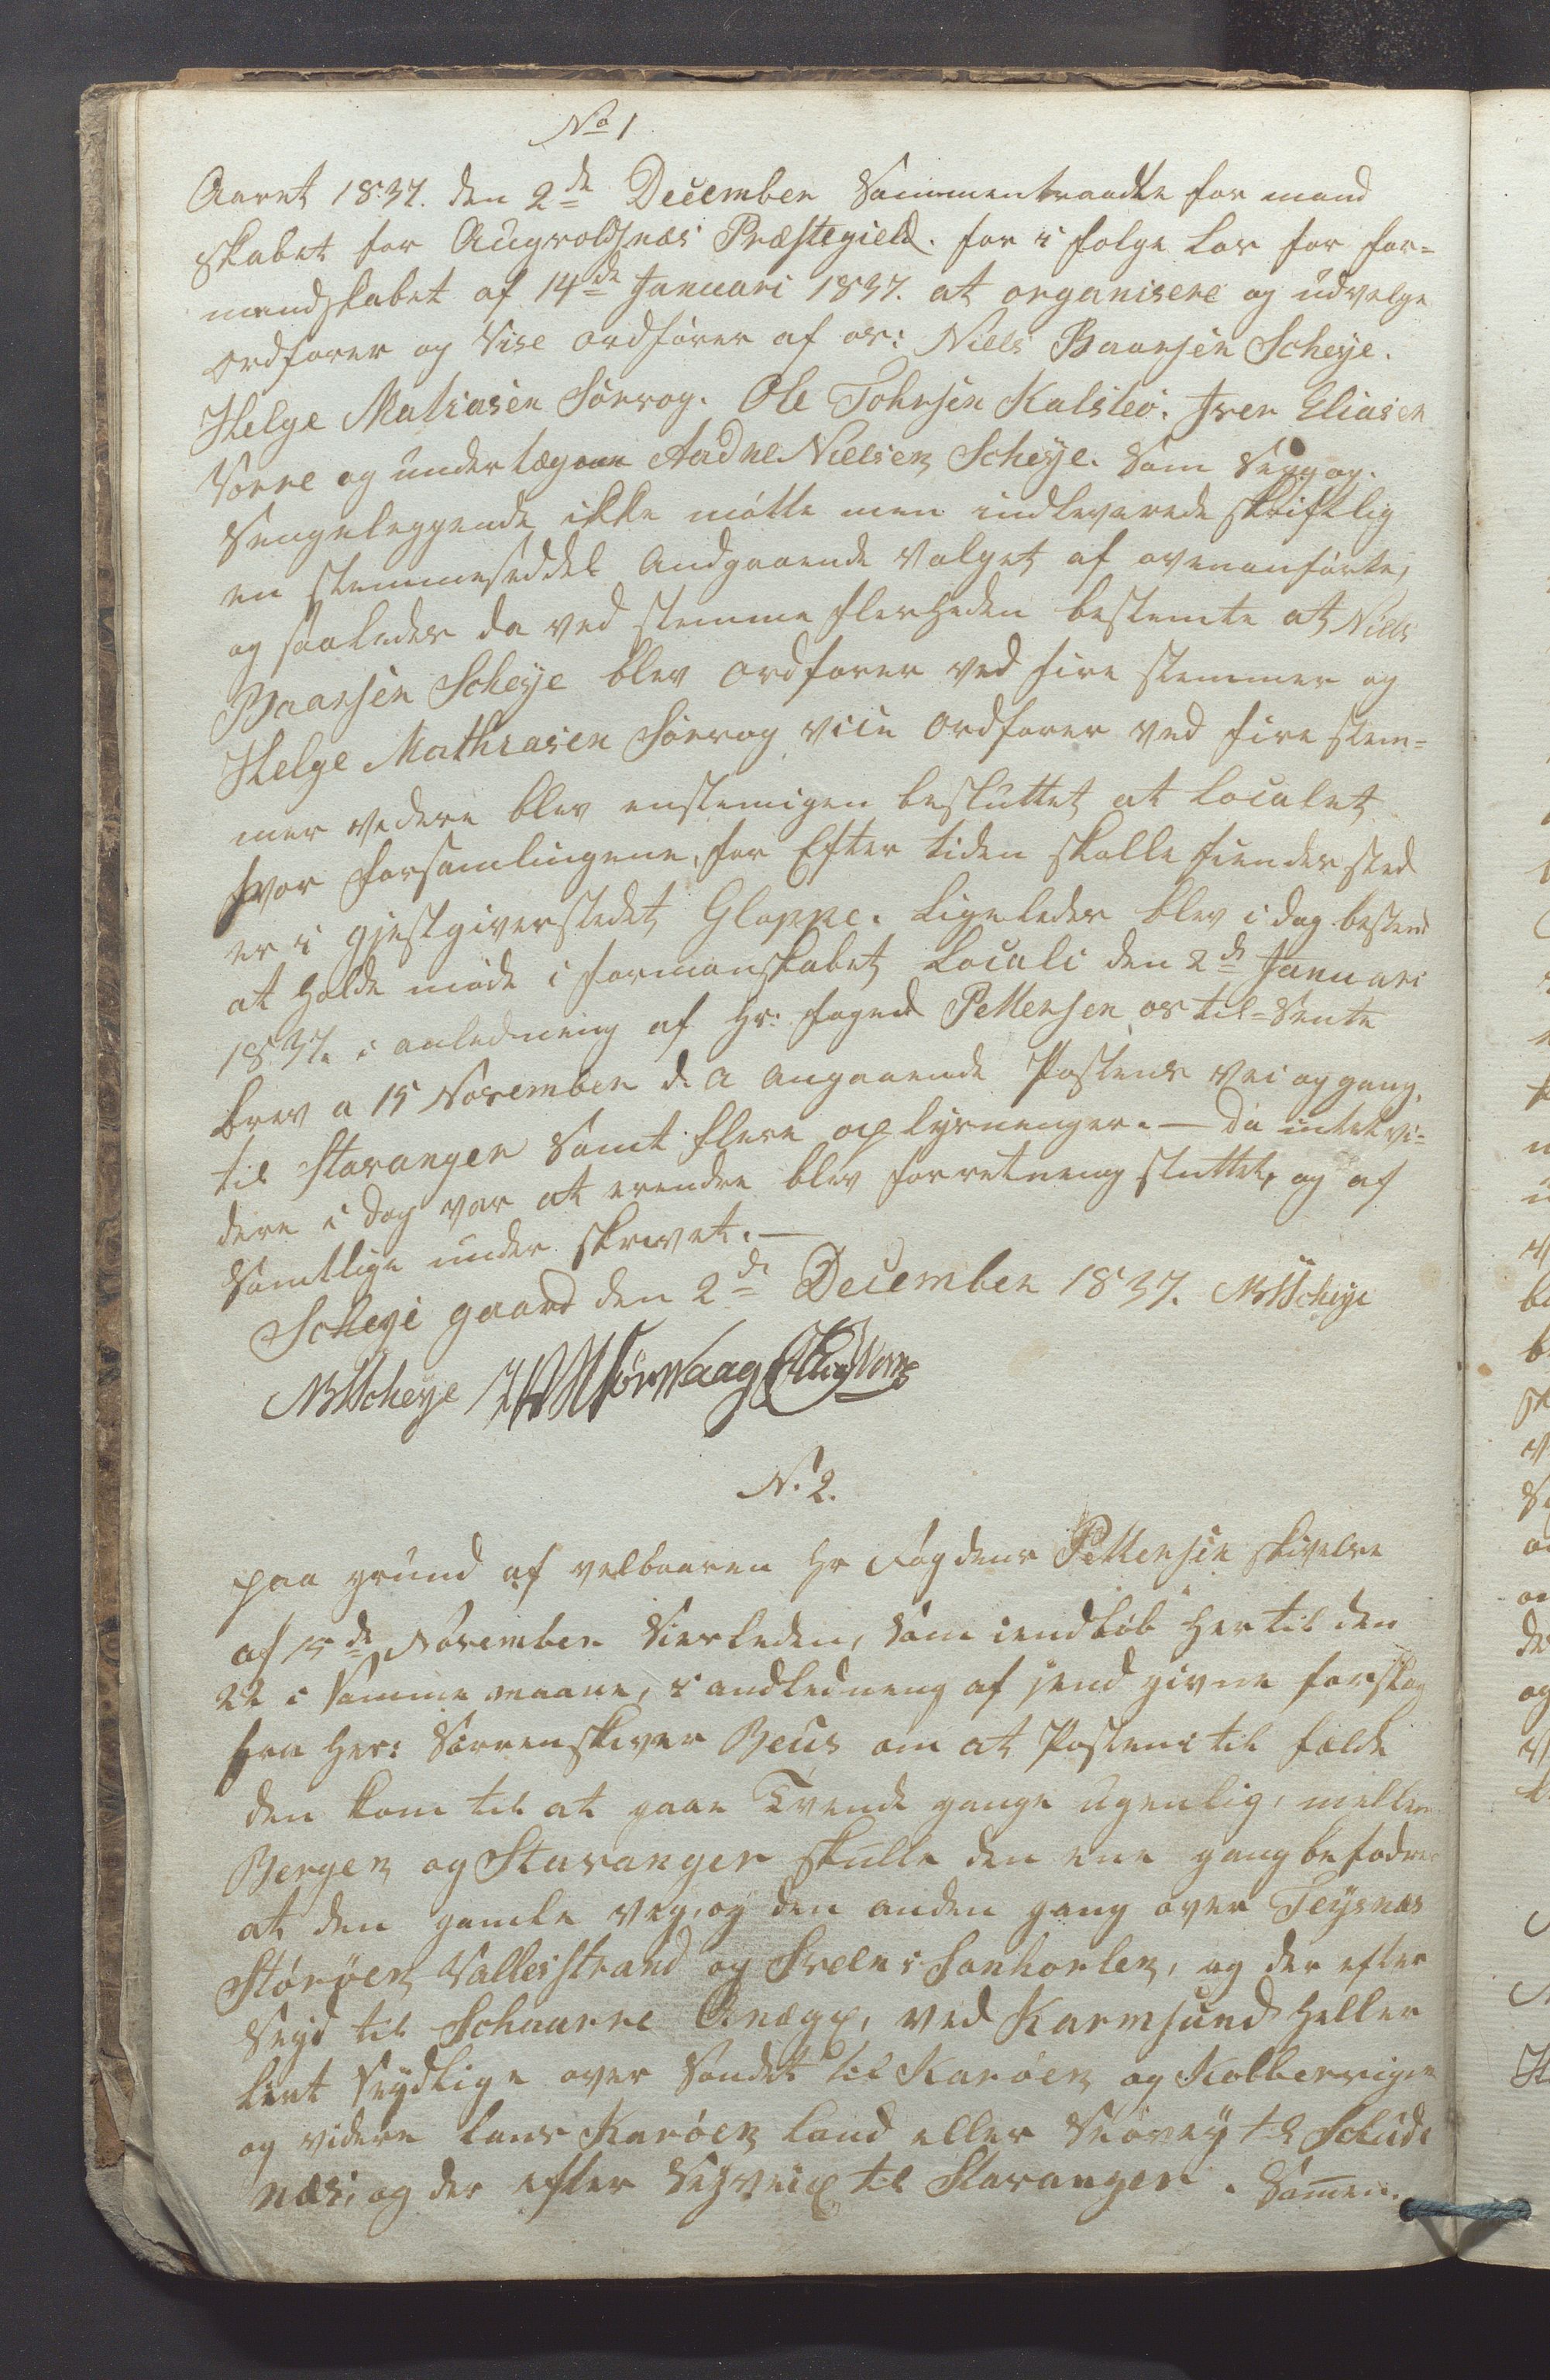 No 1
Aaret 1837. den 2de December Sammentraadte for mand
skabet for Augvoldsnæs Præstegield. for i følge Lov for for=
mandskabet af 14de Januari 1837. at organisere og udvelge
ordfører og Vise ordfører af os: Niels Baarsen Scheye.
Helge Matiasen Sørvog. Ole Johnsen Kalsteø. Iver Eliasen
Vorre og Aadne Nielsen Scheye. Som Syg og
Sengeleggende ikke møtte men indleverede skriftlig
en stemmeseddel Andgaaende Valget af ovenanførte,
og saaledes da ved stemme flerheden bestemte at Niels
Baarsen Scheye blev ordfører ved fire stemmer og
Helge Mathiasen Sørvog vice ordfører ved fire stem=
mer vedere blev enstemigen besluttet at Localet
hvor forsamlingene, for Efter tiden skulle fiendes sted
er i gjestgiverstedet Gloppe. Ligeledes blev i dag bestemt
at holde møde i formanskabet Locali den 2de Januari
1837. i anledning af Hr: foged Pettersen os til=sente
brev a 15 November d. A angaaende Postens vei og gang,
til Stavanger Samt flere oplysnenger. — Da intet vi=
dere i dag var at erendre blev forretneng sluttet, og af
Samtlige under skrevet. —
Scheye gaard den 2de December 1837. NBScheye
NBScheye HMSørwaag
N. 2.
paa grund af velbaaren Hr Fogdens Pettersen skivelse
af 15de November Sisleden, som iendløb her til den
22 i Samme maane, i andledneng af jend givne forslag
fra Her: Sorrenskiver Beus om at Postens til fælde
den kom til at gaae Tvende gange ugenlig, mellem
Bergen og Stavanger skulle den ene gang befodres
at den gamle veg, og den anden gang over Teysnæs
Størøen Vallesstrand og Sveen i Sønhorlen, og der efter
Syd til Schaarre ved Karmsund heller
Sydlige over Sundet til Karøen og Kolbensvigen
og videre lans Karøen land eller Søvey til Schude
næs, og der efter til Stavanger. Sammen.